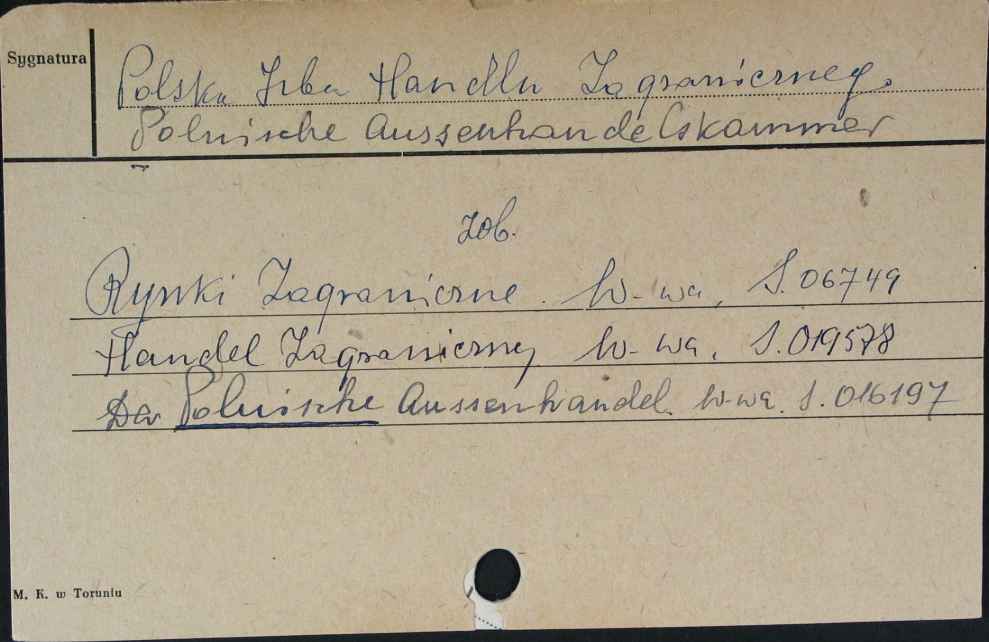 Sygnatura
Polska Izba Handlu Zagranicznego
Polnische Aussenhandelskammer
zob.
Rynki Zagraniczne W-wa, S.06749
Handel Zagraniczny W-wa, S.019578
Der Polnische Aussenhandel W-wa. S.016197
M. K. w Toruniu